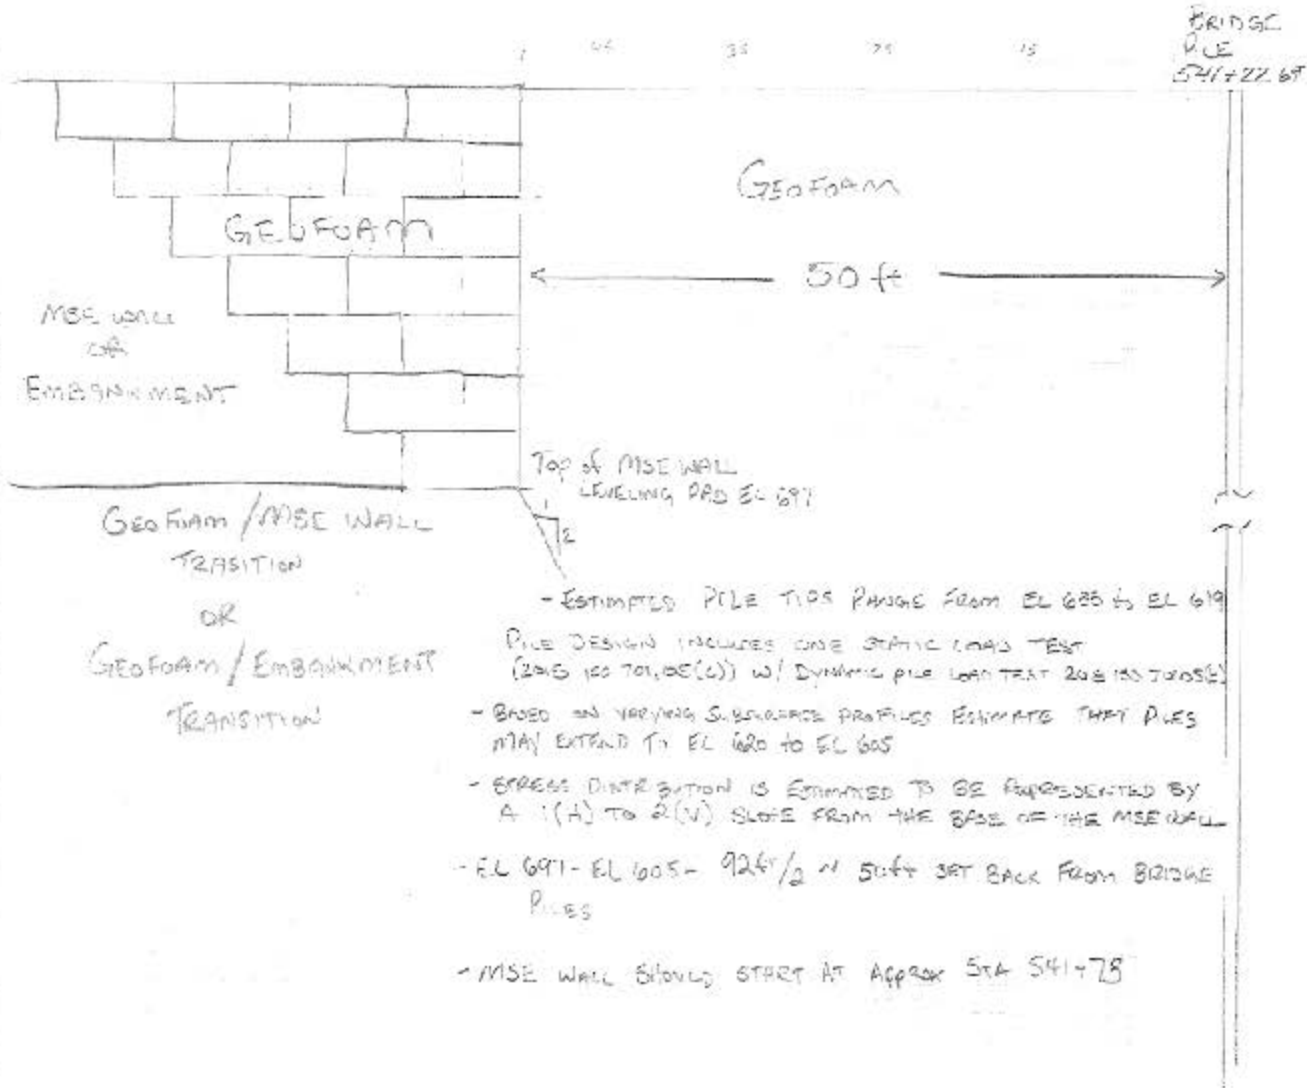 BRIDGE
PILE
541+22.69
35
25
15
GEOFOAM
GEOFOAM
50 ft
MSE WALL
OR
EMBANKMENT
TOP of MSE WALL
LEVELING PAD EL 697
1
2
GEOFOAM/MSE WALL
TRASITION
OR
GEOFOAM/EMBANKMENT
TRANSITION
- ESTIMATED PILE TIPS RANGE FROM EL 635 to EL 619
PILE DESIGN INCLUDES ONE STATIC LOAD TEST
W/ DYNAMIC PILE LOAD TEST
- BASED ON VARYING SUBSURFACE PROFILES ESTIMATE THAT PILES
MAY EXTEND TO EL 620 to EL 605
- STRESS DISTRIBUTION IS ESTIMATED TO BE REPRESENTED BY
A 1(H) TO 2(V) SLOPE FROM THE BASE OF THE MSE WALL
- EL 697 - EL 605 - 92ft/2 ~ 50ft SET BACK FROM BRIDGE
PILES
- MSE WALL SHOULD START AT APPROX STA 541+73